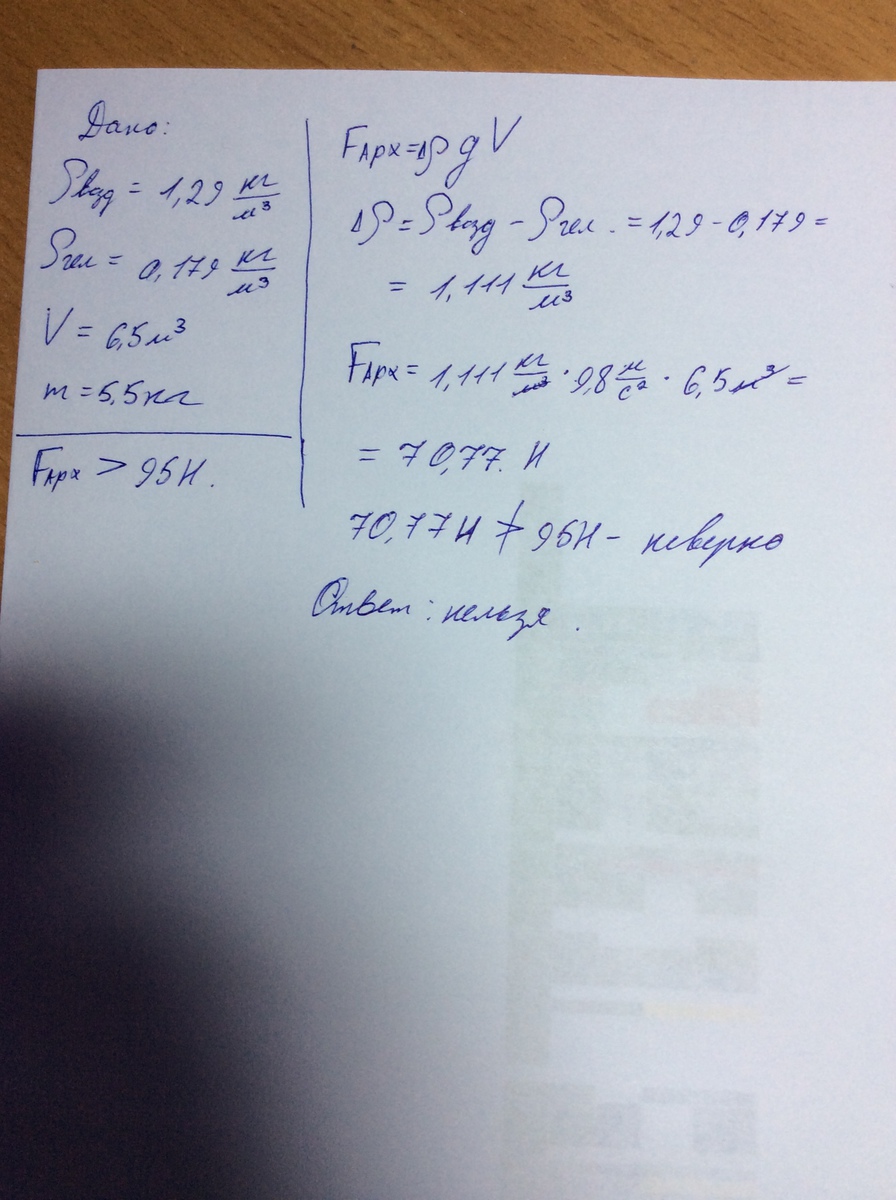 Дано:
ρвозд = 1,29 кг/м³
ρгел = 0,179 кг/м³
V = 6,5 м³
m = 5,5 кг
Fарх > 95 Н.
Fарх = Δρ g V
Δρ = ρвозд - ρгел. = 1,29 - 0,179 =
= 1,111 кг/м³
Fарх = 1,111 кг/м³ · 9,8 м/с² · 6,5 м³ =
= 70,77. Н
70,77 Н ≯ 95 Н - неверно
Ответ: нельзя.